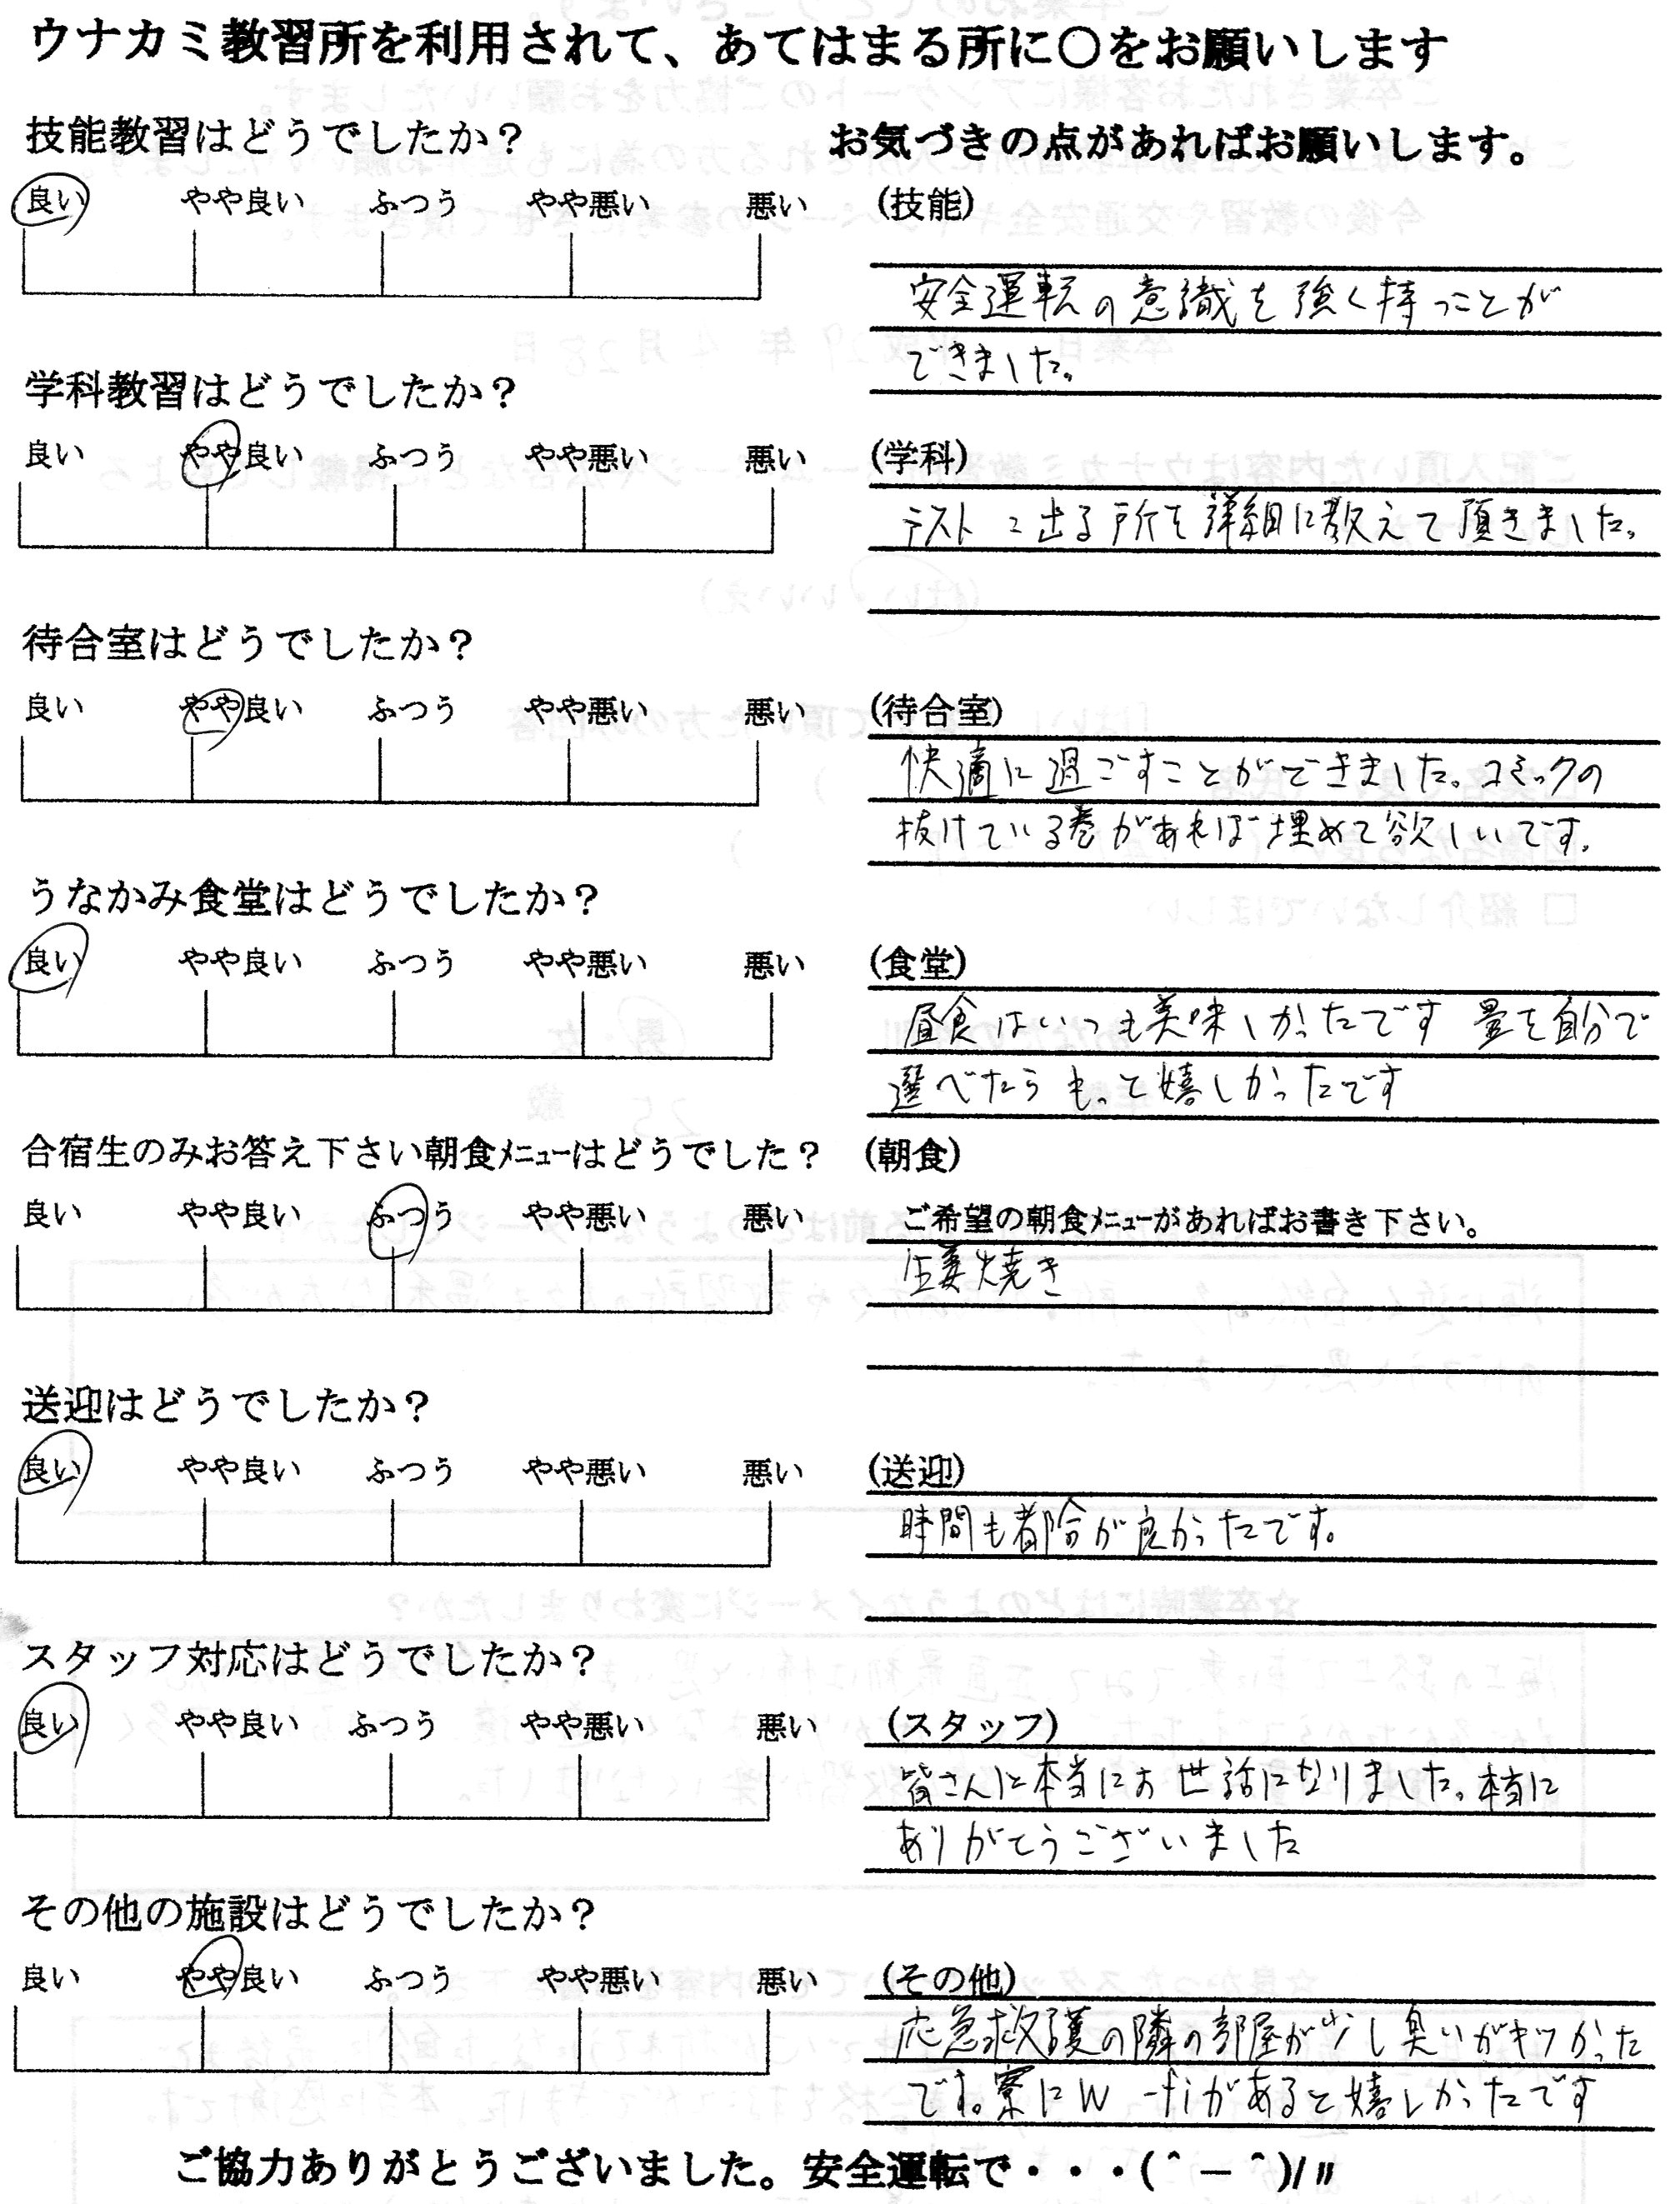 ウナカミ教習所を利用されて、あてはまる所に〇をお願いします
技能教習はどうでしたか？
お気づきの点があればお願いします。
良い やや良い ふつう やや悪い 悪い
(技能)
安全運転の意識を強く持つことが
できました。
学科教習はどうでしたか？
良い やや良い ふつう やや悪い 悪い
(学科)
テストに出る所を詳細に教えて頂きました。
待合室はどうでしたか？
良い やや良い ふつう やや悪い 悪い
(待合室)
快適に過ごすことができました。コミックの
抜けている巻があれば埋めて欲しいです。
うなかみ食堂はどうでしたか？
良い やや良い ふつう やや悪い 悪い
(食堂)
昼食はいつも美味しかったです 量を自分で
選べたらもっと嬉しかったです
合宿生のみお答え下さい朝食メニューはどうでした？
(朝食)
良い やや良い ふつう やや悪い 悪い
ご希望の朝食メニューがあればお書き下さい。
生姜焼き
送迎はどうでしたか？
良い やや良い ふつう やや悪い 悪い
(送迎)
時間も都合が良かったです。
スタッフ対応はどうでしたか？
良い やや良い ふつう やや悪い 悪い
(スタッフ)
皆さんに本当にお世話になりました。本当に
ありがとうございました
その他の施設はどうでしたか？
良い やや良い ふつう やや悪い 悪い
(その他)
応急救護の隣の部屋が少し臭いがキツかった
です。寮にW -fiがあると嬉しかったです
ご協力ありがとうございました。安全運転で・・・(＾－＾)/〃